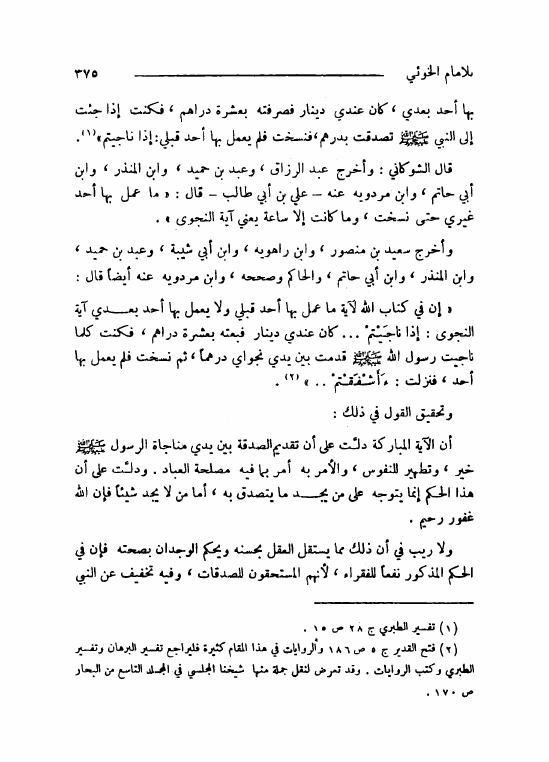 للامام الخوئي ٣٧٥
بها أحد بعدي ، كان عندي دينار فصرفته بعشرة دراهم ، فكنت إذا جئت
إلى النبي ﷺ تصدقت بدرهم ، فنسخت فلم يعمل بها أحد قبلي : إذا ناجيتم » (١) .
قال الشوكاني : وأخرج عبد الرزاق ، وعبد بن حميد ، وابن المنذر ، وابن
أبي حاتم ، وابن مردويه عنه – علي بن أبي طالب – قال : « ما عمل بها أحد
غيري حتى نسخت ، وما كانت إلا ساعة يعني آية النجوى » .
وأخرج سعيد بن منصور ، وابن راهويه ، وابن أبي شيبة ، وعبد بن حميد ،
وابن المنذر ، وابن أبي حاتم ، والحاكم وصححه ، وابن مردويه عنه أيضاً قال :
« إن في كتاب الله لآية ما عمل بها أحد قبلي ولا يعمل بها أحد بعدي آية
النجوى : إذا ناجَيْتمْ ... كان عندي دينار فبعته بعشرة دراهم ، فكنت كلما
ناجيت رسول الله ﷺ قدمت بين يدي نجواي درهماً ، ثم نسخت فلم يعمل بها
أحد ، فنزلت : ءَأَشْفَقْتمْ .. » (٢) .
وتحقيق القول في ذلك :
أن الآية المباركة دلت على أن تقديم الصدقة بين يدي مناجاة الرسول ﷺ
خير ، وتطهير للنفوس ، والأمر به أمر بما فيه مصلحة العباد . ودلت على أن
هذا الحكم إنما يتوجه على من يجد ما يتصدق به ، أما من لا يجد شيئاً فإن الله
غفور رحيم .
ولا ريب في أن ذلك مما يستقل العقل بحسنه ويحكم الوجدان بصحته فإن في
الحكم المذكور نفعاً للفقراء ، لأنهم المستحقون للصدقات ، وفيه تخفيف عن النبي
(١) تفسير الطبري ج ٢٨ ص ١٥ .
(٢) فتح القدير ج ٥ ص ١٨٦ والروايات في هذا المقام كثيرة فليراجع تفسير البرهان وتفسير
الطبري وكتب الروايات . وقد تعرض لنقل جملة منها شيخنا المجلسي في المجلد التاسع من البحار
ص ١٧٠ .